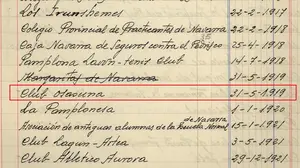 Los Irunshemes 22-2-1917
Colegio Provincial de Practicantes de Navarra 22-2-1918
Caja Navarra de Seguros contra el Pedrisco 25-4-1918
Pamplona Lawn-tenis Club 14-7-1918
Margaritas de Navarra 31-5-1919
Club Osasuna 31-5-1919
La Pamplonesa 1-1-1920
Asociación de antiguas alumnas de la Escuela Normal de Navarra 15-1-1921
Club Lagun-Artea 3-5-1921
Club Atlético Aurora 29-12-1921